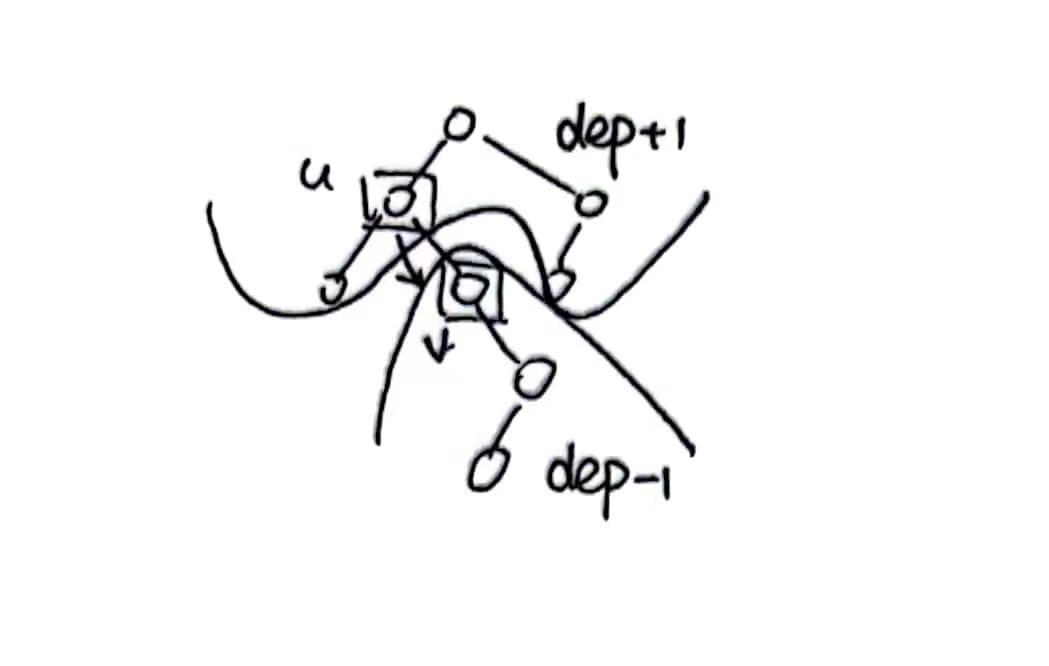 dep+1
u
v
dep-1